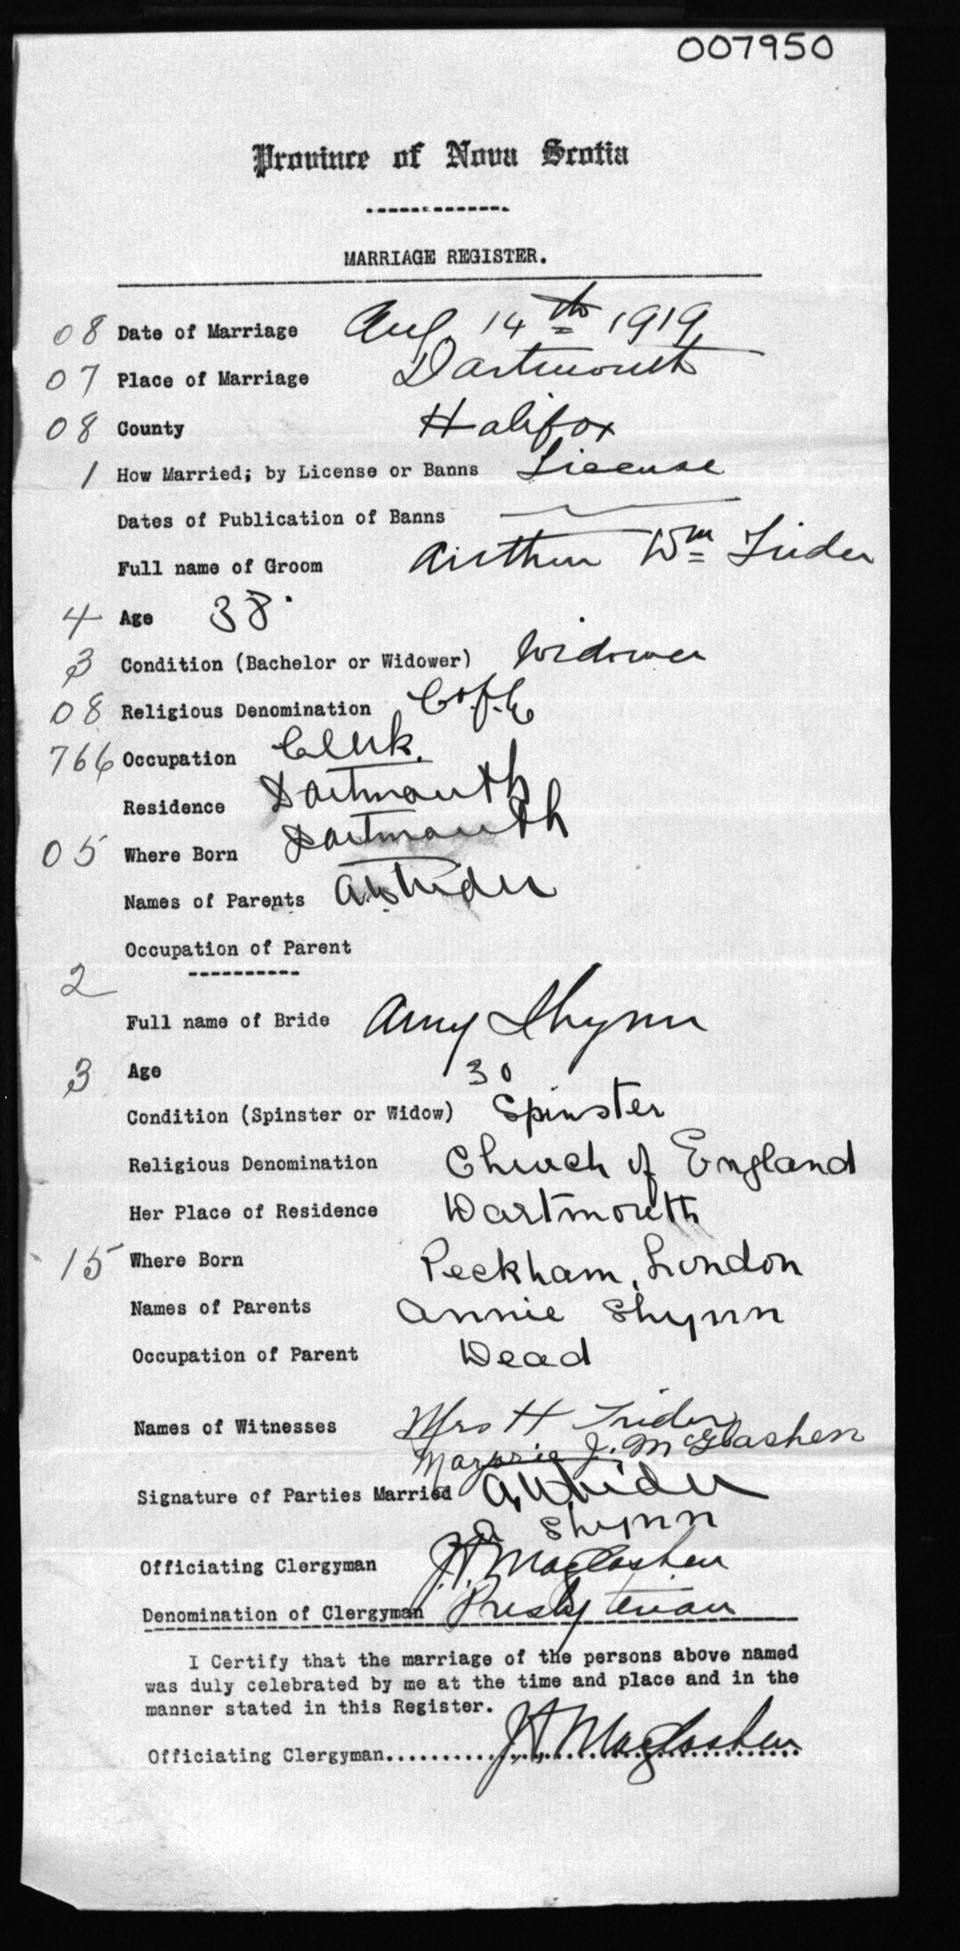 007950
Province of Nova Scotia
MARRIAGE REGISTER.
08 Date of Marriage Aug 14th 1919
07 Place of Marriage Dartmouth
08 County Halifax
1 How Married; by License or Banns License
Dates of Publication of Banns
Full name of Groom Arthur Wm Trider
4 Age 38
3 Condition (Bachelor or Widower) Widower
08 Religious Denomination C of E
766 Occupation Clerk.
Residence Dartmouth
05 Where Born Dartmouth
Names of Parents A W Trider
Occupation of Parent
2
Full name of Bride Amy Shynn
3 Age 30
Condition (Spinster or Widow) Spinster
Religious Denomination Church of England
Her Place of Residence Dartmouth
15 Where Born Peckham, London
Names of Parents Annie Shynn
Occupation of Parent Dead
Names of Witnesses Mrs H Trider
Marjorie J. McGlashen
Signature of Parties Married A W Trider
A Shynn
Officiating Clergyman J.A. MacGlashen
Denomination of Clergyman Presbyterian
I Certify that the marriage of the persons above named
was duly celebrated by me at the time and place and in the
manner stated in this Register.
Officiating Clergyman J.A. MacGlashen